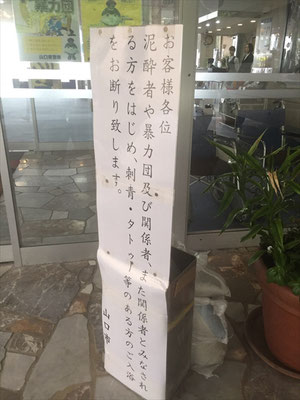 お客様各位
泥酔者や暴力団及び関係者、また関係者とみなされ
る方をはじめ、刺青・タトゥー等のある方のご入浴
をお断り致します。
山口市
暴力団